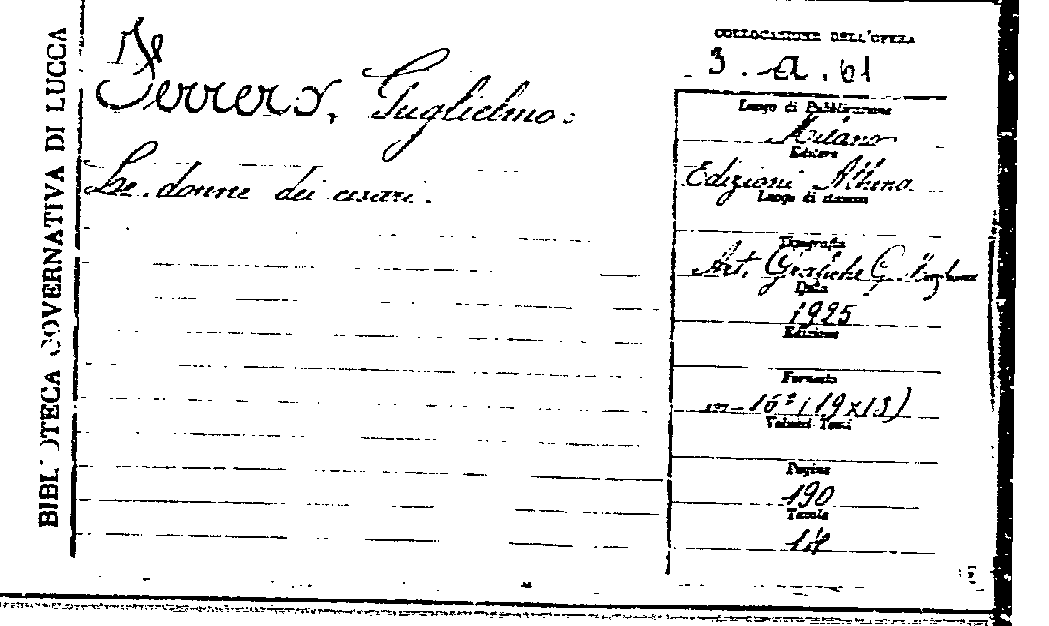 BIBLIOTECA GOVERNATIVA DI LUCCA
Ferrero, Guglielmo:
Le donne dei cesari.
COLLOCAZIONE DELL'OPERA
3. A. 61
Luogo di Pubblicazione
Milano
Editore
Edizioni Athena
Luogo di stampa
Tipografia
Art. Grafiche G.
Data
1925
Edizione
Formato
in-16° (19x13)
Volumi Tomi
Pagine
190
Tavole